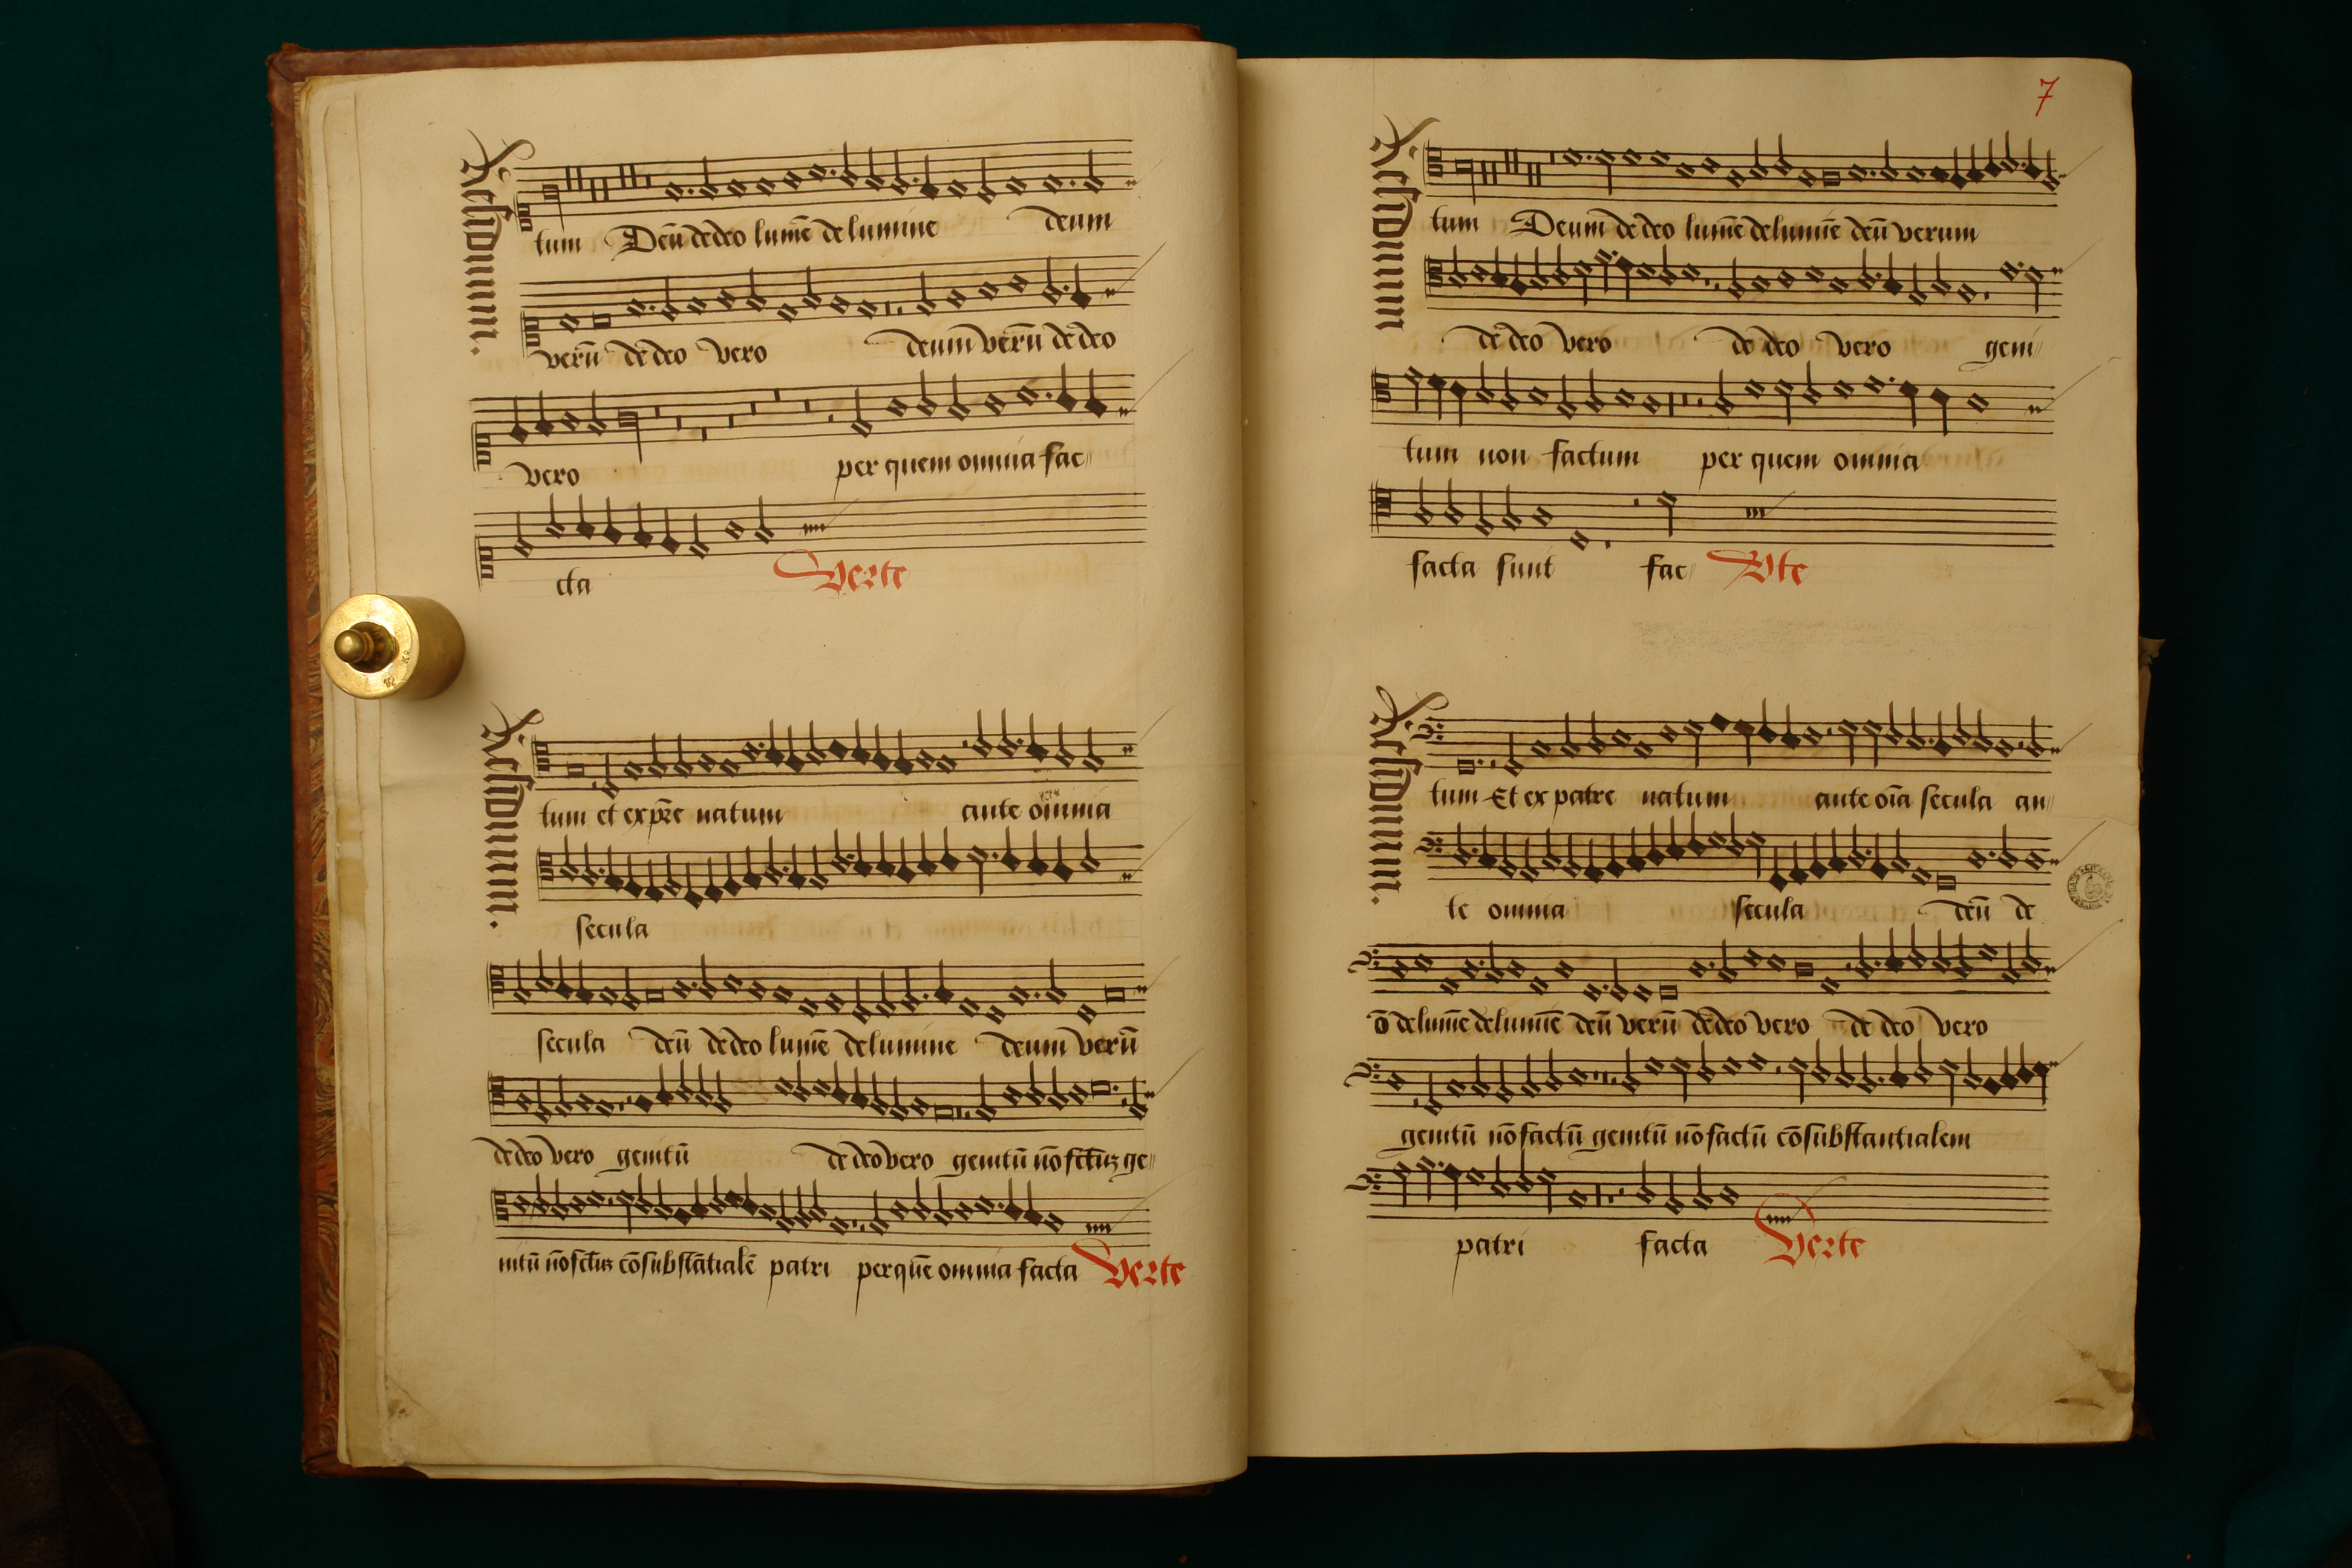 Residuum.
tum Deū de deo lumē de lumine deum
verū de deo vero deum verū de deo
vero per quem omnia fac〃
cta Verte
Residuum.
tum et ex pr̄e natum ante omnia
secula
secula deū de deo lumē de lumine deum verū
de deo vero genitū de deo vero genitū nō fctūꝫ ge〃
nitū nō fctūꝫ cōsubstātialē patri per quē omnia facta Verte
7
Residuum
tum Deum de deo lumē de lumīe deū verum
de deo vero de deo vero geni〃
tum non factum per quem omnia
facta sunt fac〃 Vte
Residuum.
tum Et ex patre natum ante oīa secula an〃
te omnia secula deū de
ō de lumīe de lumīe deū verū de deo vero de deo vero
genitū nō factū genitū nō factū cōsubstantialem
patri facta Verte